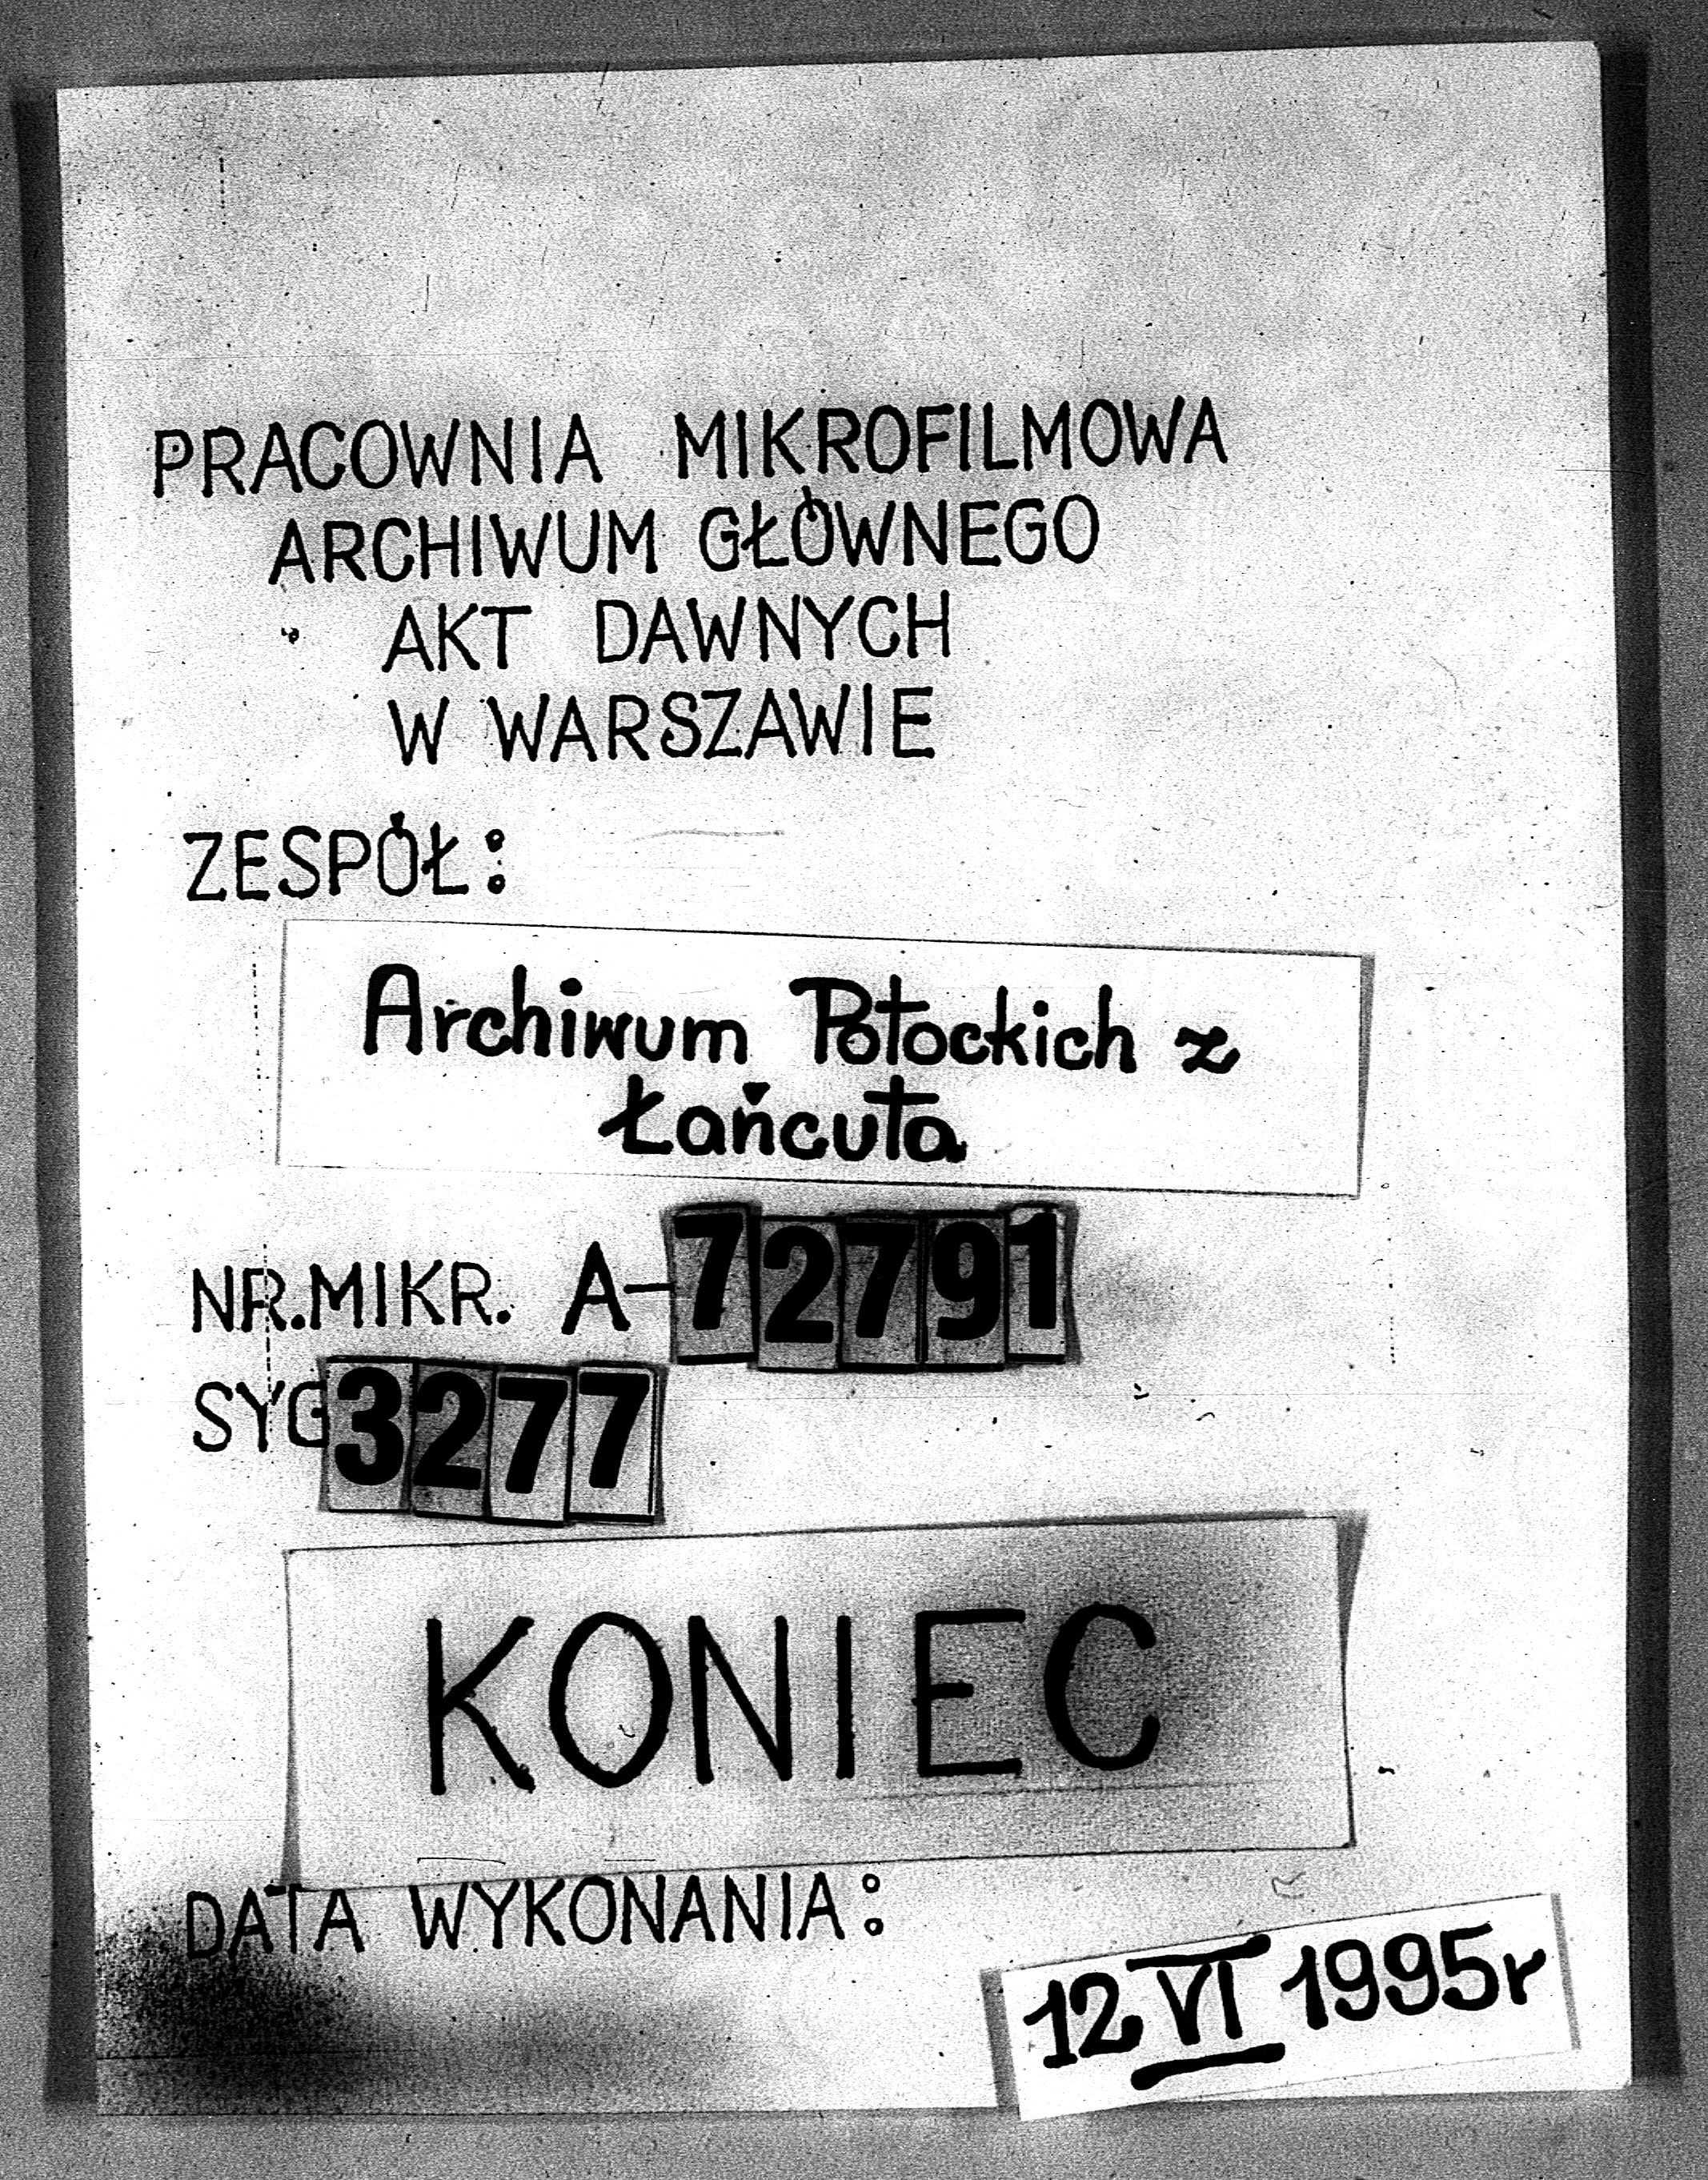 PRACOWNIA MIKROFILMOWA
ARCHIWUM GŁÓWNEGO
AKT DAWNYCH
W WARSZAWIE
ZESPÓŁ:
Archiwum Potockich z
Łańcuta
NR.MIKR. A-72791
SYG 3277
KONIEC
DATA WYKONANIA:
12 VI 1995r